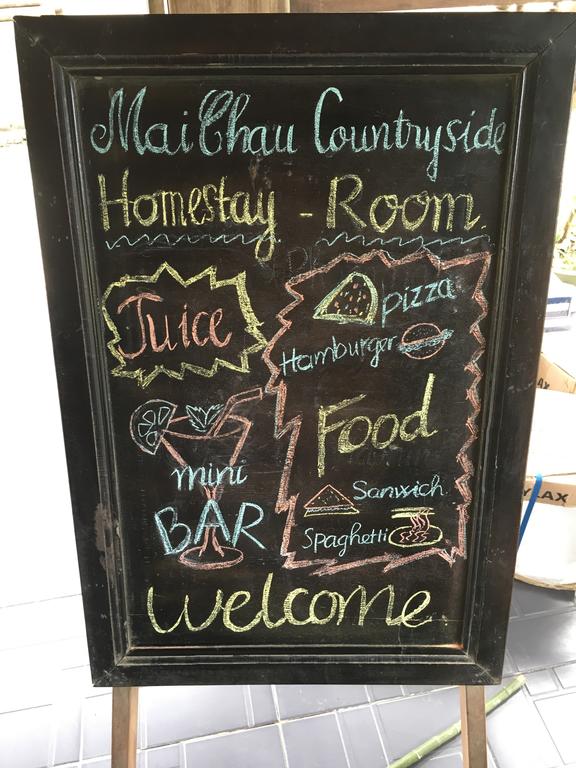 Mai Chau Countryside
Homestay - Room
Juice
pizza
Hamburger
Food
Sanwich
Spaghetti
mini
BAR
Welcome
LAX